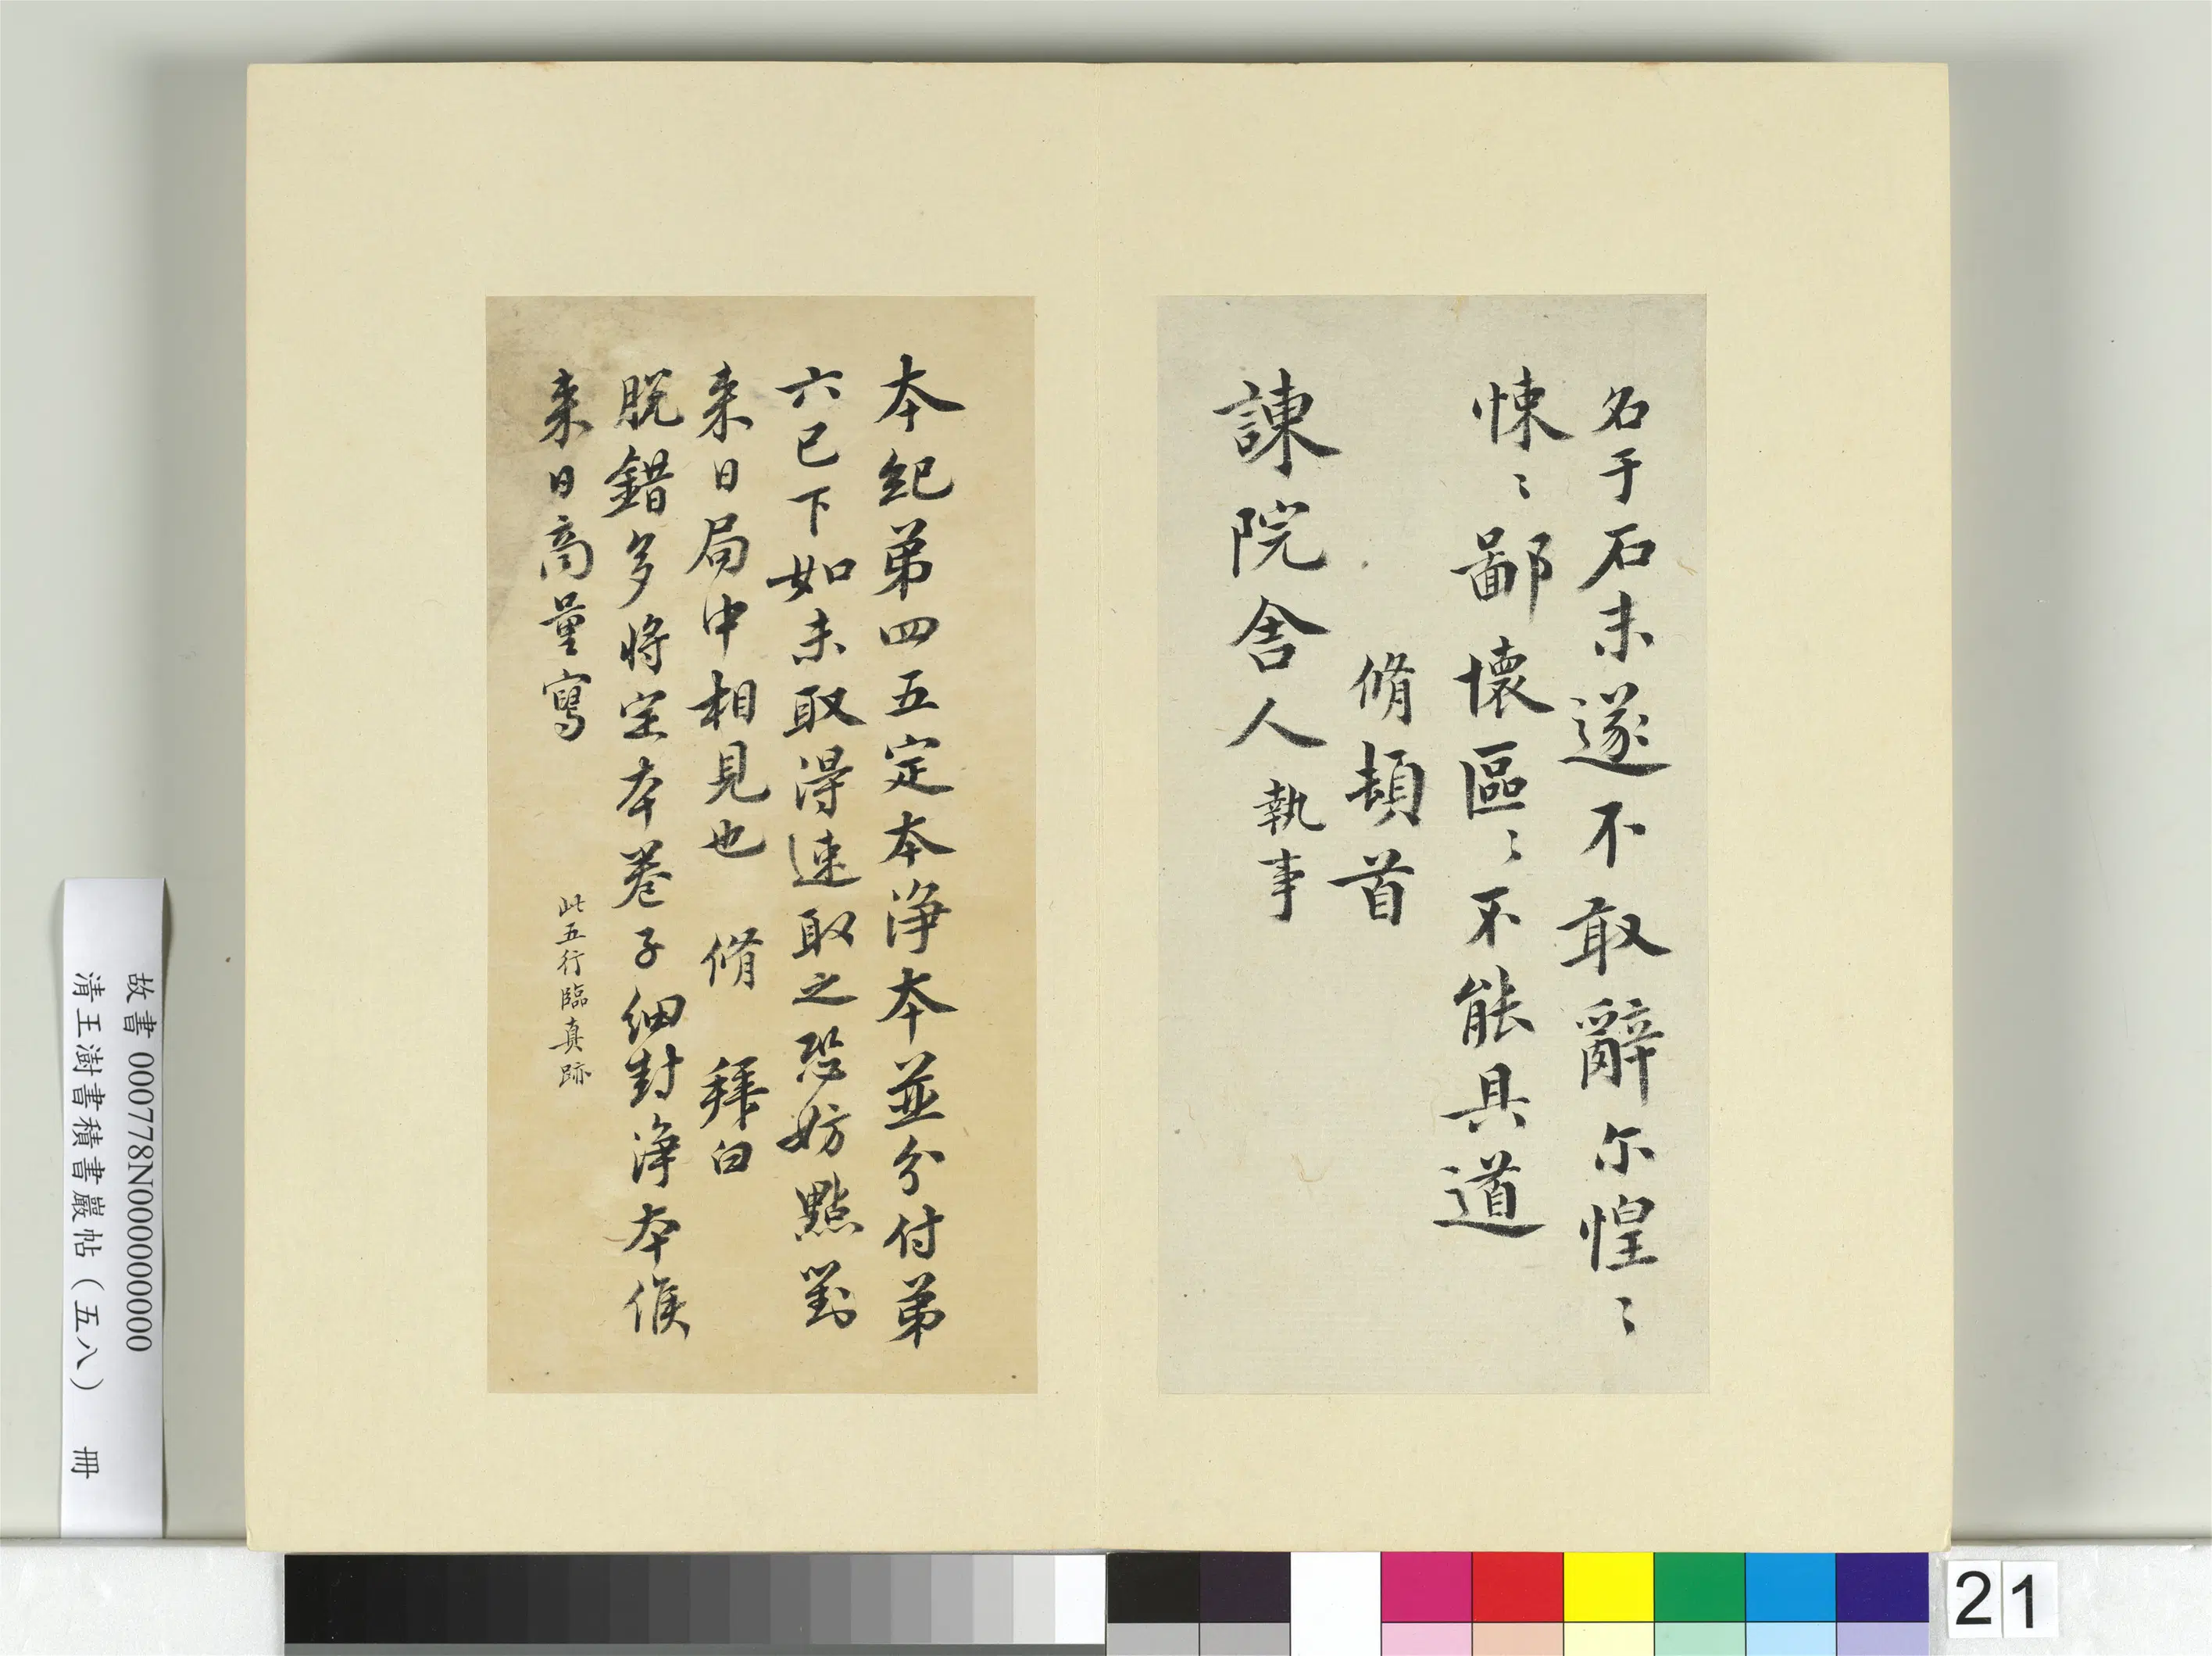 名于石未遂不敢辭尔惶〻
悚〻鄙懷區〻不能具道
脩頓首
諫院舍人執事
本紀弟四五定本淨本並分付弟
六已下如未取得速取之恐妨點對
来日局中相見也 脩 拜白
脫錯多將定本卷子細對淨本候
来日商量寫
此五行臨真跡
故書 000778N000000000
清王澍書積書巖帖(五八) 冊
21